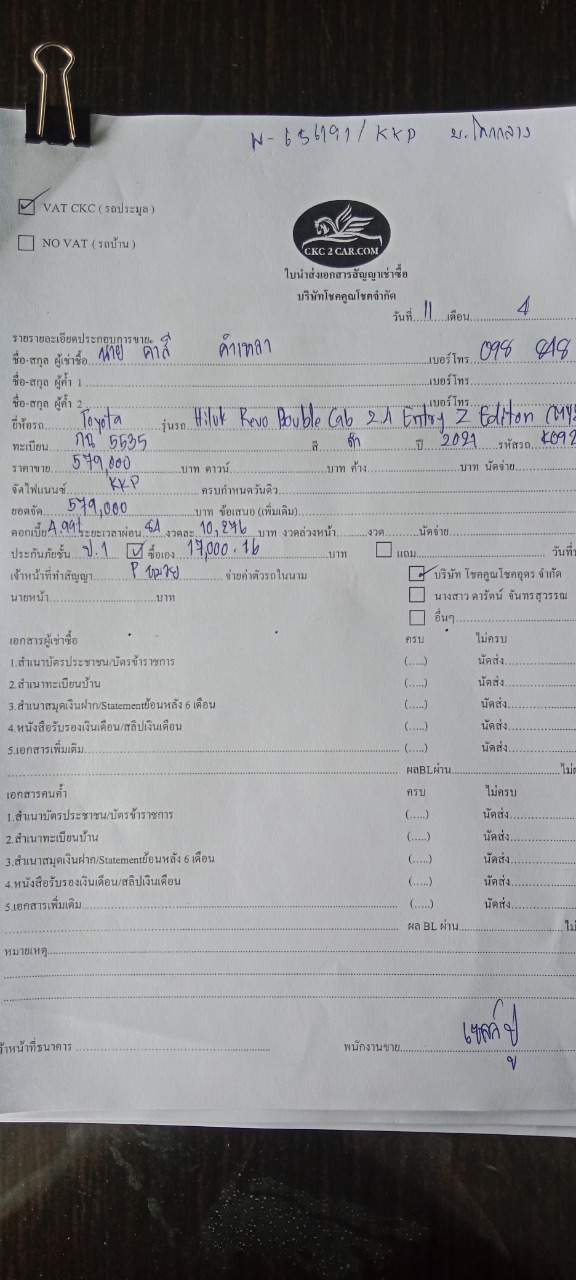 N-656191/KKP
VAT CKC ( รถประมูล )
NO VAT ( รถบ้าน )
CKC 2 CAR.COM
ใบนำส่งเอกสารสัญญาเช่าซื้อ
บริษัทโชคคูณโชคจำกัด
วันที่ 11 เดือน 4
รายรายละเอียดประกอบการขาย
ชื่อ-สกุล ผู้เช่าซื้อ นาย คาสี เบอร์โทร 098 848
ชื่อ-สกุล ผู้ค้ำ 1 เบอร์โทร
ชื่อ-สกุล ผู้ค้ำ 2 เบอร์โทร
ยี่ห้อรถ Toyota รุ่นรถ Hilux Revo Double Cab 2.4 Entry Z Edition
ทะเบียน 5535 สี ดำ ปี 2021 รหัสรถ K092
ราคาขาย 579,000 บาท ดาวน์ บาท ค้าง บาท นัดจ่าย
จัดไฟแนนซ์ KKP ครบกำหนดวันคิว
ยอดจัด 579,000 บาท ข้อเสนอ (เพิ่มเติม)
ดอกเบี้ย 4.99% ระยะเวลาผ่อน 84 งวดละ 10,276 บาท งวดล่วงหน้า งวด นัดจ่าย
ประกันภัยชั้น ป.1 ซื้อเอง 17,000.16 บาท แถม วันที่
เจ้าหน้าที่ทำสัญญา P จ่ายค่าตัวรถในนาม บริษัท โชคคูณโชคอุดร จำกัด
นายหน้า บาท นางสาว ดารัตน์ จันทรสุวรรณ
อื่นๆ
เอกสารผู้เช่าซื้อ ครบ ไม่ครบ
1.สำเนาบัตรประชาชน/บัตรข้าราชการ (.....) นัดส่ง
2.สำเนาทะเบียนบ้าน (.....) นัดส่ง
3.สำเนาสมุดเงินฝาก/Statementย้อนหลัง 6 เดือน (.....) นัดส่ง
4.หนังสือรับรองเงินเดือน/สลิปเงินเดือน (.....) นัดส่ง
5.เอกสารเพิ่มเติม (.....) นัดส่ง
ผลBLผ่าน
เอกสารคนค้ำ ครบ ไม่ครบ
1.สำเนาบัตรประชาชน/บัตรข้าราชการ (.....) นัดส่ง
2.สำเนาทะเบียนบ้าน (.....) นัดส่ง
3.สำเนาสมุดเงินฝาก/Statementย้อนหลัง 6 เดือน (.....) นัดส่ง
4.หนังสือรับรองเงินเดือน/สลิปเงินเดือน (.....) นัดส่ง
5.เอกสารเพิ่มเติม (.....) นัดส่ง
ผล BL ผ่าน
หมายเหตุ
จ้าหน้าที่ธนาคาร พนักงานขาย เซลล์ปู